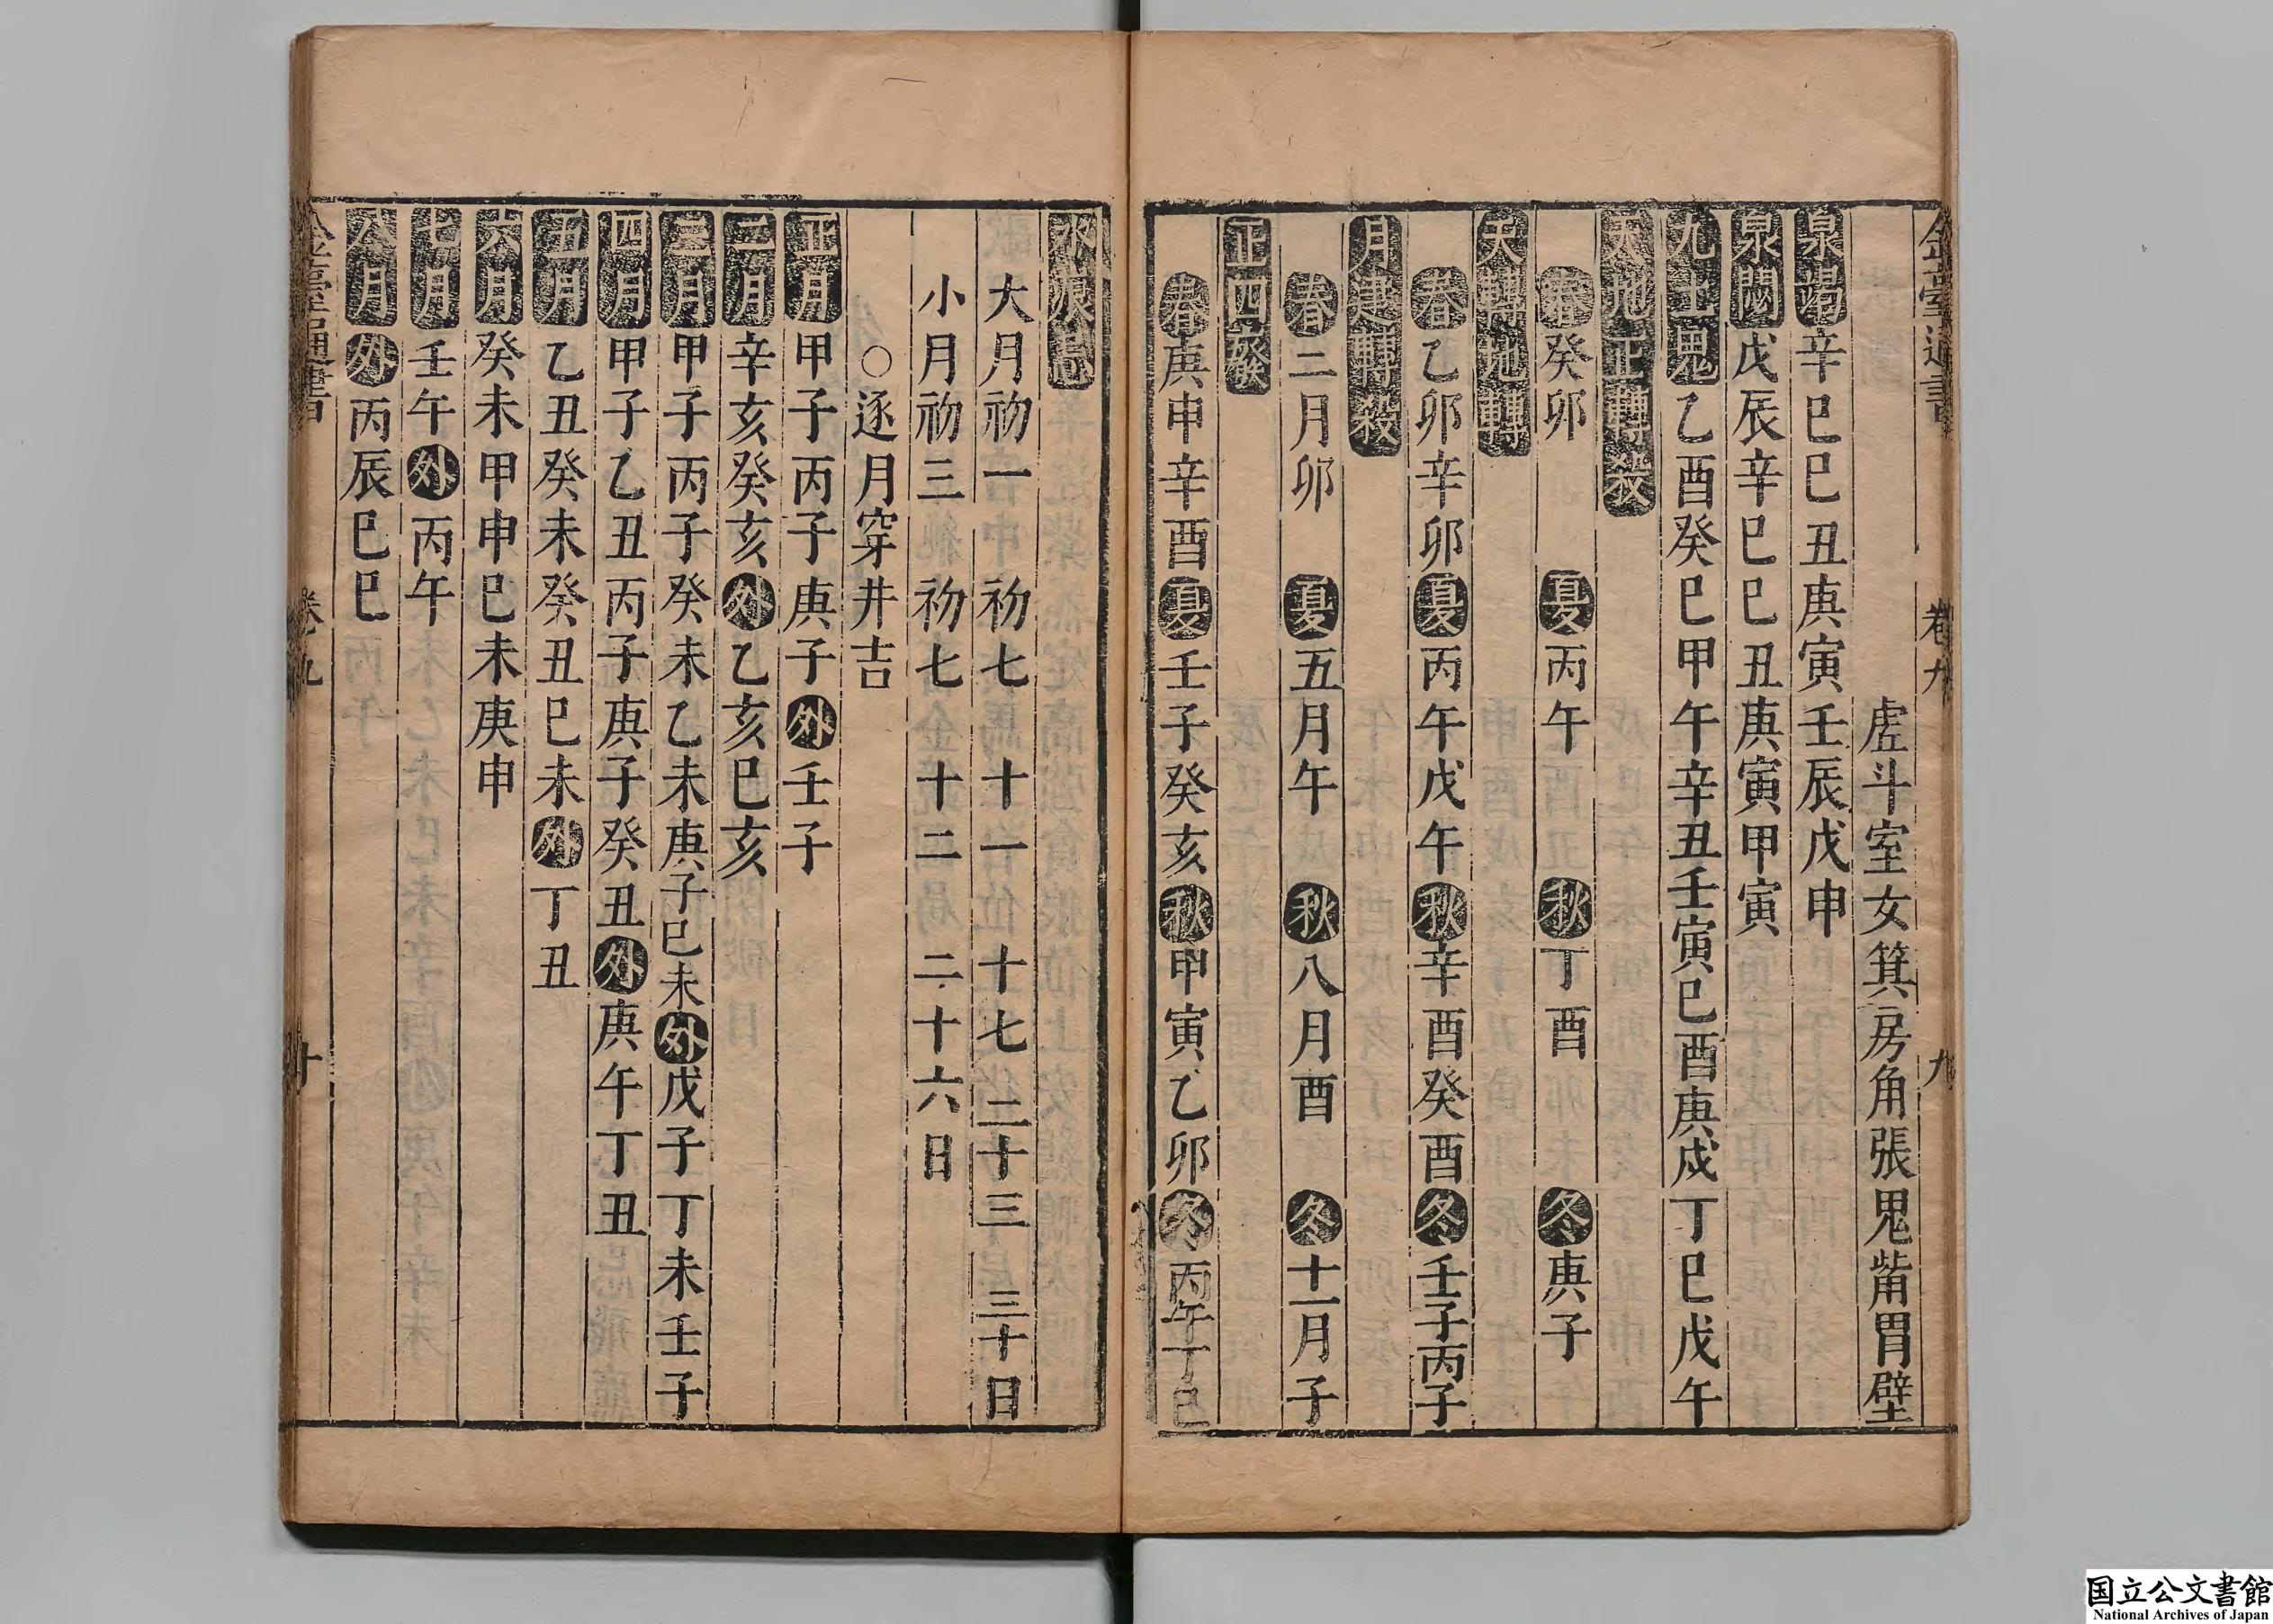 金臺通書 卷九 九
虚斗室女箕房角張鬼觜胃壁
泉竭辛巳巳丑庚寅壬辰戊申
泉閟戊辰辛巳巳丑庚寅甲寅
九土鬼乙酉癸巳甲午辛丑壬寅巳酉庚戌丁巳戊午
天地正轉殺
春癸卯 夏丙午 秋丁酉 冬庚子
天轉地轉
春乙卯辛卯夏丙午戊午秋辛酉癸酉冬壬子丙子
月建轉殺
春二月卯 夏五月午 秋八月酉 冬十一月子
正四癈
春庚申辛酉夏壬子癸亥秋甲寅乙卯冬丙午丁巳
水痕忌
大月初一 初七 十一 十七 二十三 三十日
小月初三 初七 十二 二十六日
○逐月穿井吉
正月甲子丙子庚子外壬子
二月辛亥癸亥外乙亥巳亥
三月甲子丙子癸未乙未庚子巳未外戊子丁未壬子
四月甲子乙丑丙子庚子癸丑外庚午丁丑
五月乙丑癸未癸丑巳未外丁丑
六月癸未甲申巳未庚申
七月壬午外丙午
八月外丙辰巳巳
金臺通書 卷九 十
国立公文書館
National Archives of Japan